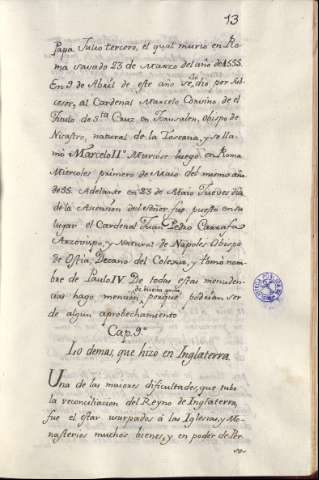 13
Papa Julio tercero, el qual murio en Ro-
ma savado 23 de Marzo del año de 1555.
En 9 de Abril de este año se dio por sub-
cesor, al Cardenal Marcelo Corvino, de el
Titulo de S.ta Cruz en Jerusalen, obispo de
Nicastro, natural de la Toscana, y se lla-
mò Marcelo II.º Murióse luego en Roma
Miercoles primero de Maio del mismo año
de 55. Adelante en 23 de Maio Jueves dia
de la Ascension del señor fue puesto en su
lugar el Cardenal Juan Pedro Carrafa
Arzovispo, y Natural de Napoles Obispo
de Ostia, Decano del Colegio, y tomò nom-
bre de Paulo IV. De todas estas menuden-
cias hago mencion, porque podrian ser
de algun aprobechamiento
Cap. 9.º
Lo demas, que hizo en Inglaterra.
Una de las maiores dificultades, que tubo
la reconciliacion del Reyno de Inglaterra,
fue el estar usurpados à las Iglesias, y Mo-
nasterios muchos bienes, y en poder de Per-
so-